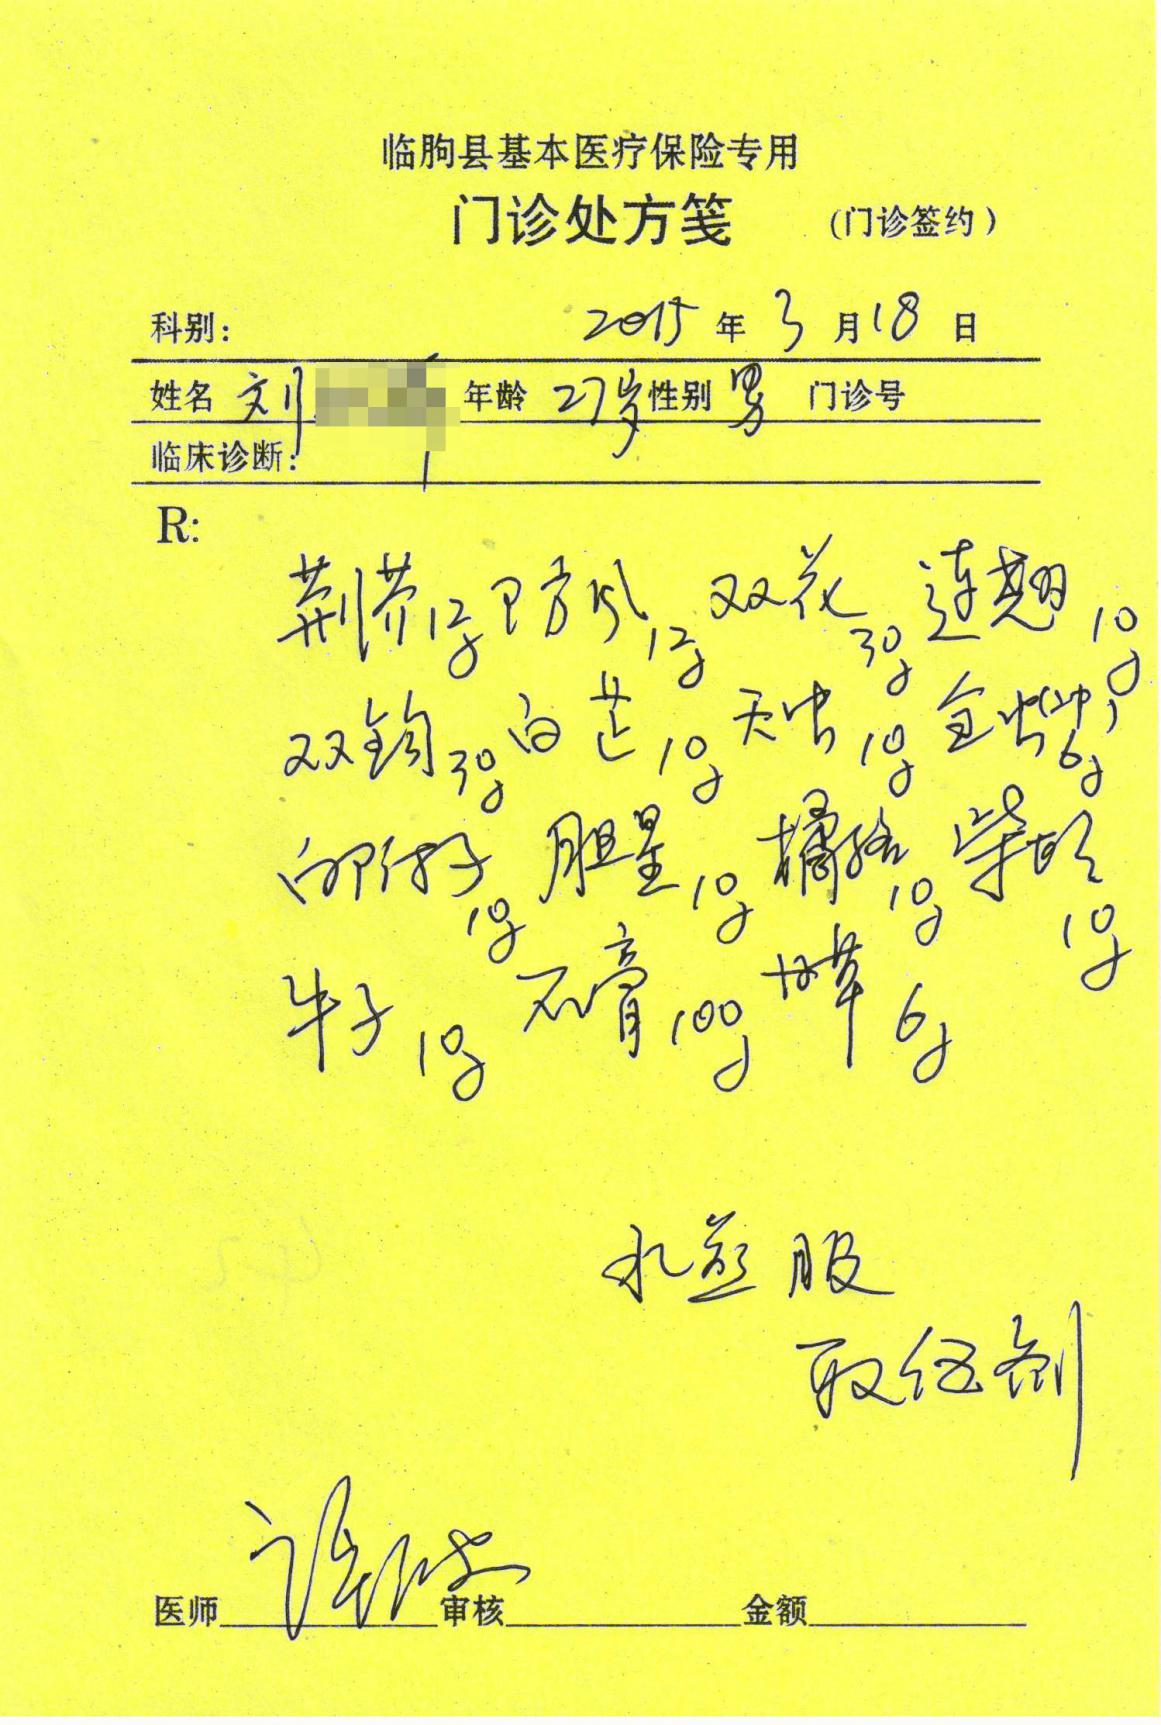 临朐县基本医疗保险专用
门诊处方笺 (门诊签约)
科别: 2015年3月18日
姓名 刘 年龄 27岁 性别 男 门诊号
临床诊断:
R:
荆芥12g 防风12g 双花30g 连翘10g
双钩30g 白芷10g 天虫10g 全虫(冲)6g
白附子10g 胆星10g 橘络10g 柴胡10g
牛子10g 石膏100g 甘草6g
水煎服
取伍剂
医师 审核 金额